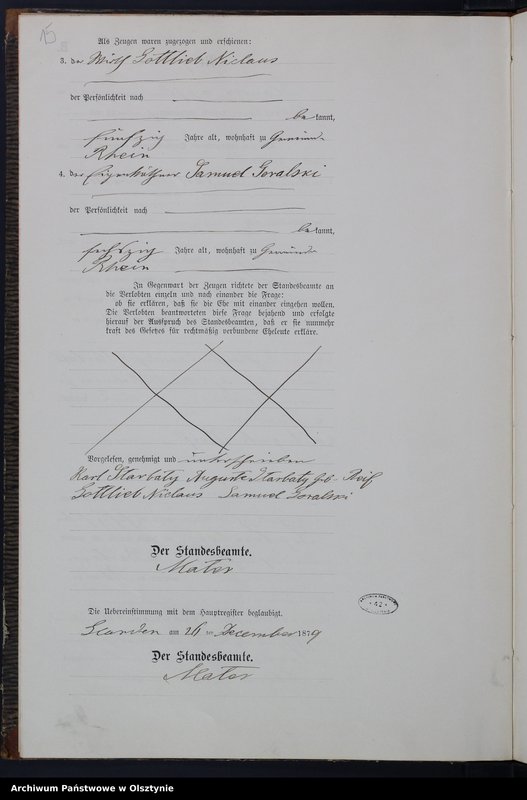 15
Als Zeugen waren zugezogen und erschienen:
3. der Wirth Gottlieb Niclaus
der Persönlichkeit nach
bekannt,
fünfzig Jahre alt, wohnhaft zu
Rhein
4. der Eigenkäthner Samuel Goralski
der Persönlichkeit nach
bekannt,
sechszig Jahre alt, wohnhaft zu
Rhein
In Gegenwart der Zeugen richtete der Standesbeamte an
die Verlobten einzeln und nach einander die Frage:
ob sie erklären, daß sie die Ehe mit einander eingehen wollen.
Die Verlobten beantworteten diese Frage bejahend und erfolgte
hierauf der Ausspruch des Standesbeamten, daß er sie nunmehr
kraft des Gesetzes für rechtmäßig verbundene Eheleute erkläre.
Vorgelesen, genehmigt und unterschrieben
Karl Starbaty Auguste Starbaty geb. Reif
Gottlieb Niclaus Samuel Goralski
Der Standesbeamte.
Mater
Die Uebereinstimmung mit dem Hauptregister beglaubigt.
am 26 ten December 1879
Der Standesbeamte.
Mater
42
Archiwum Państwowe w Olsztynie